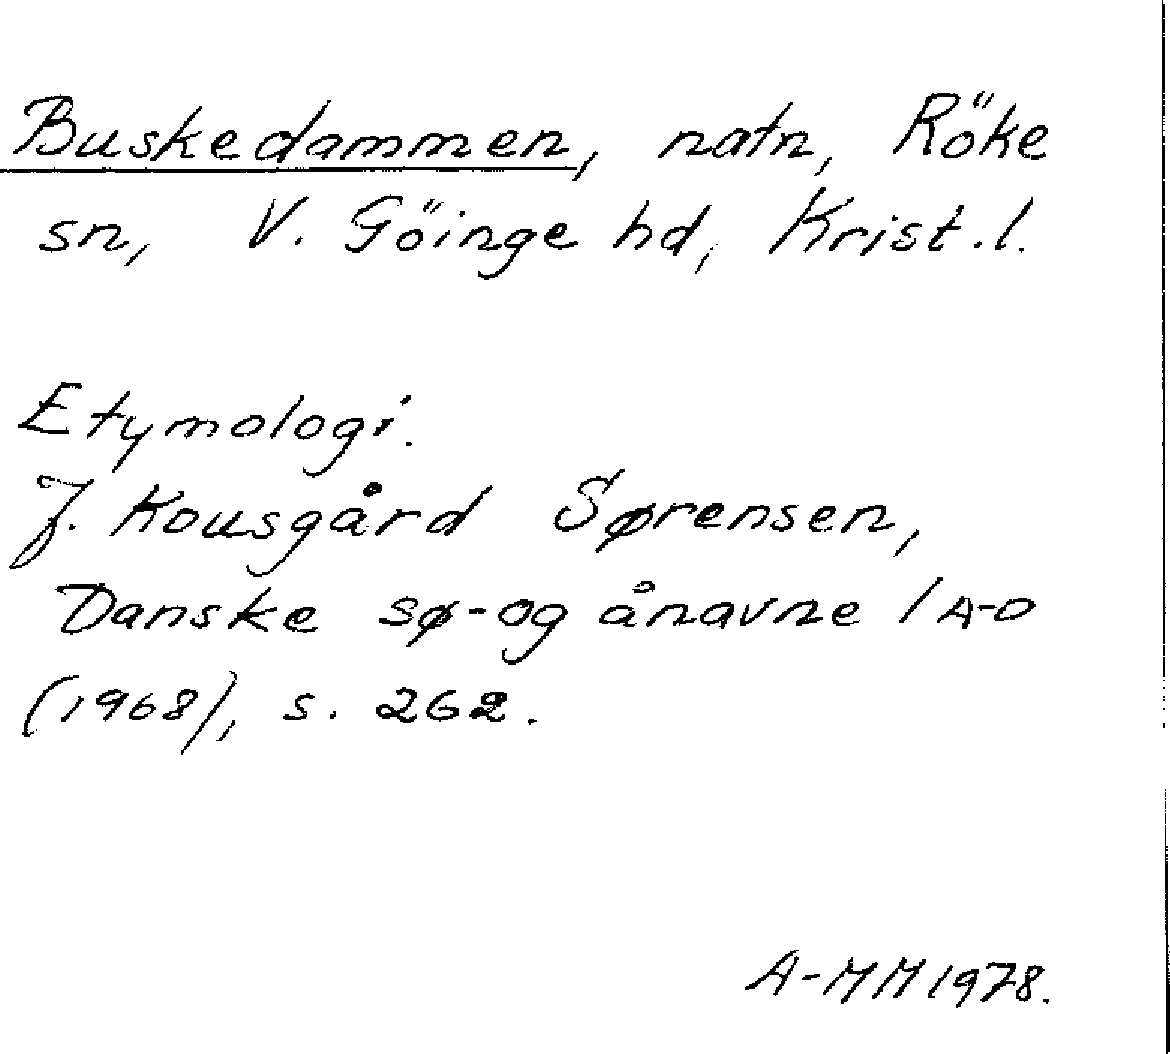 Buskedammen, natn, Röke
sn, V. Göinge hd, Krist.l.
Etymologi.
J. Kousgård Sørensen,
Danske sø- og ånavne 1 A-D
(1968), s. 262.
A-MM 1978.